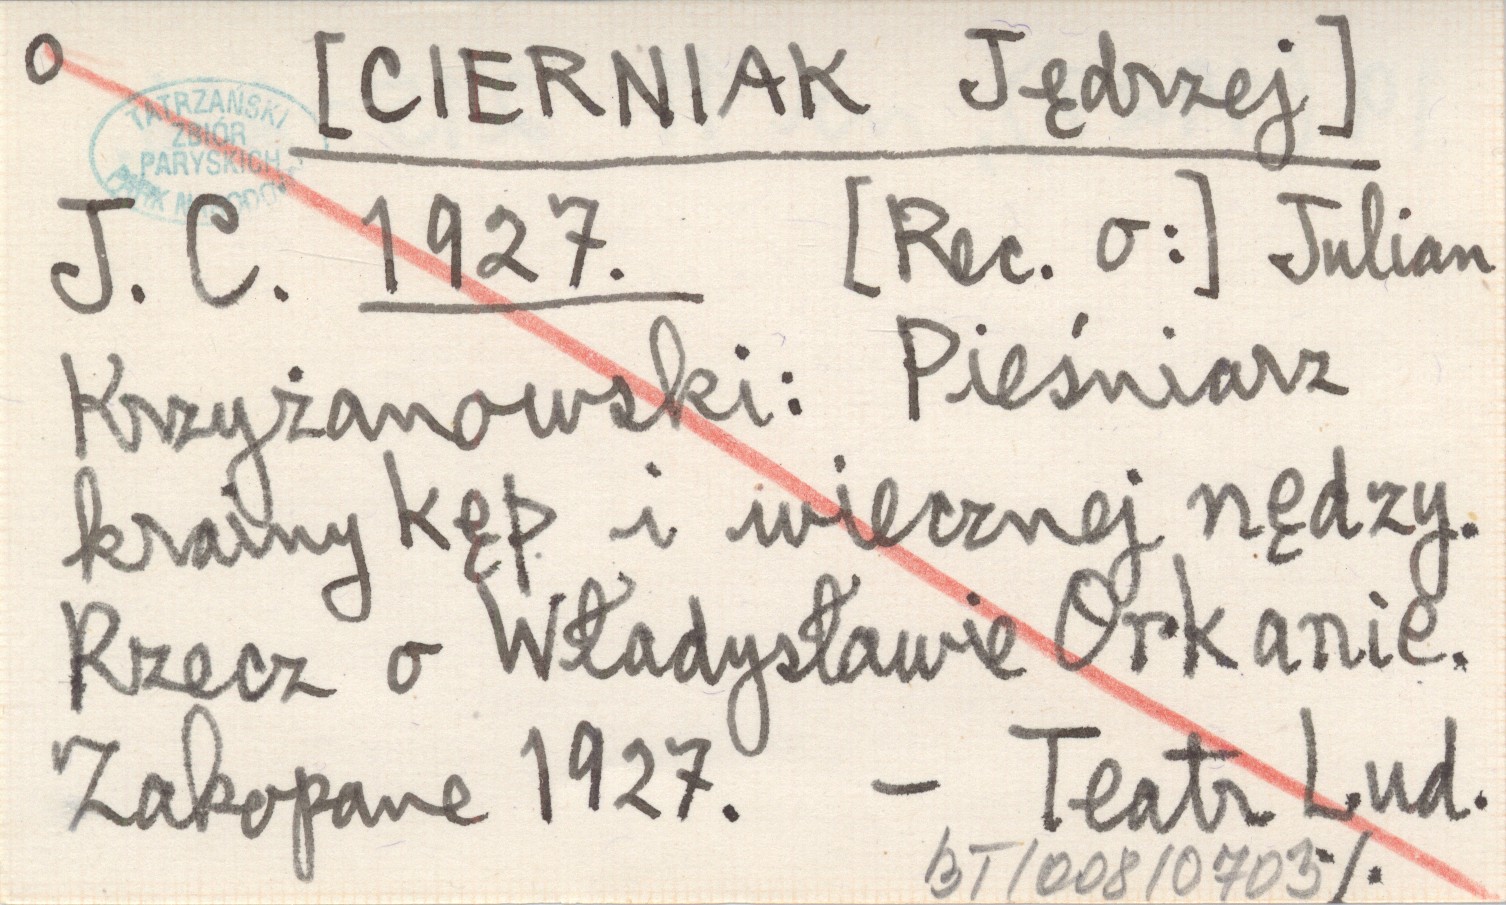 o [CIERNIAK Jędrzej]
TATRZAŃSKI
ZBIÓR
PARYSKICH
J. C. 1927. [Rec. o:] Julian
Krzyżanowski: Pieśniarz
krainy kęp i wiecznej nędzy.
Rzecz o Władysławie Orkanie.
Zakopane 1927. – Teatr Lud.
BT/008/0703/.